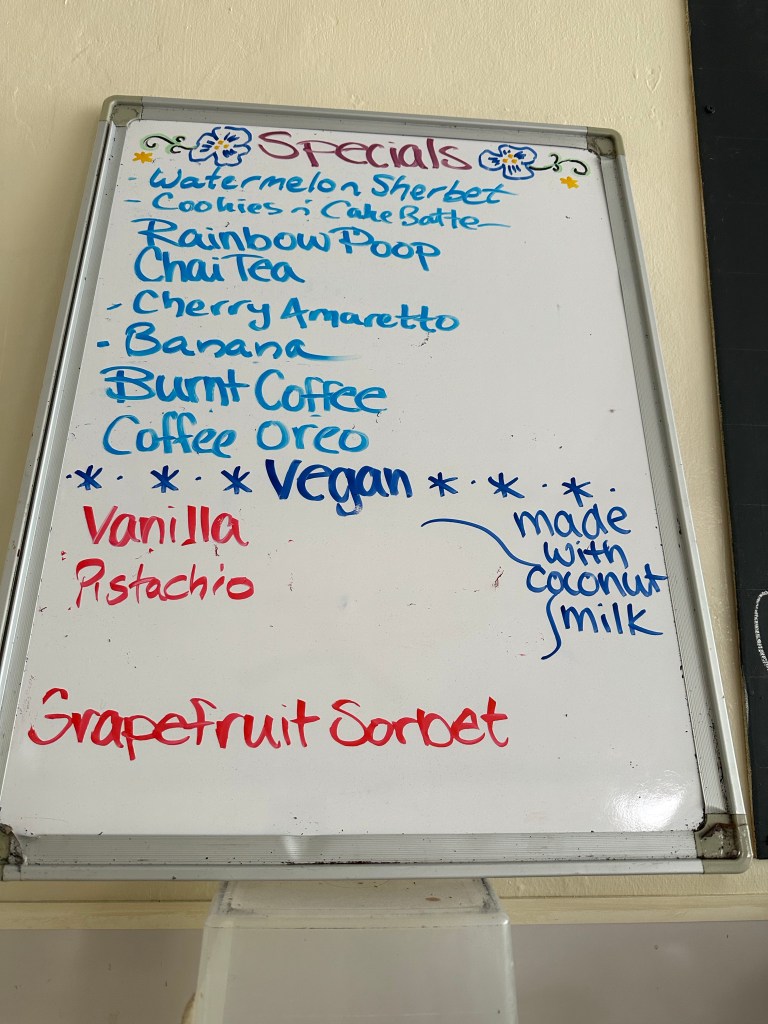 Specials
- Watermelon Sherbet
- Cookies n' Cake Batter
Rainbow Poop
Chai Tea
- Cherry Amaretto
- Banana
Burnt Coffee
Coffee Oreo
Vegan
Vanilla
Pistachio
made
with
coconut
milk
Grapefruit Sorbet